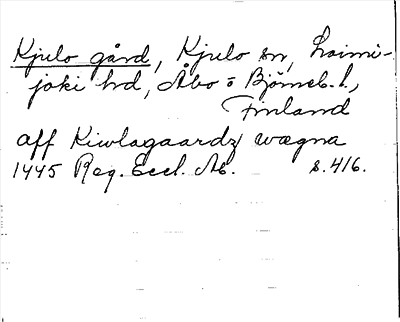 Kjulo gård, Kjulo sn, Loimi-
joki hd, Åbo o Björneb. l.,
Finland
aff Kiwlagaardz wægna
1445 Reg. Eccl. Ab. s. 416.